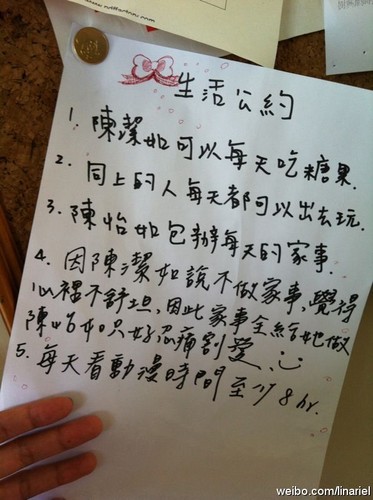 www.eslite.com
生活公約
1. 陳潔如可以每天吃糖果.
2. 同上的人每天都可以出去玩.
3. 陳怡如包辦每天的家事.
4. 因陳潔如說不做家事,覺得
心裡不舒坦,因此家事全給她做
陳怡如只好忍痛割愛.
5. 每天看動漫時間至少8hr.
weibo.com/linariel